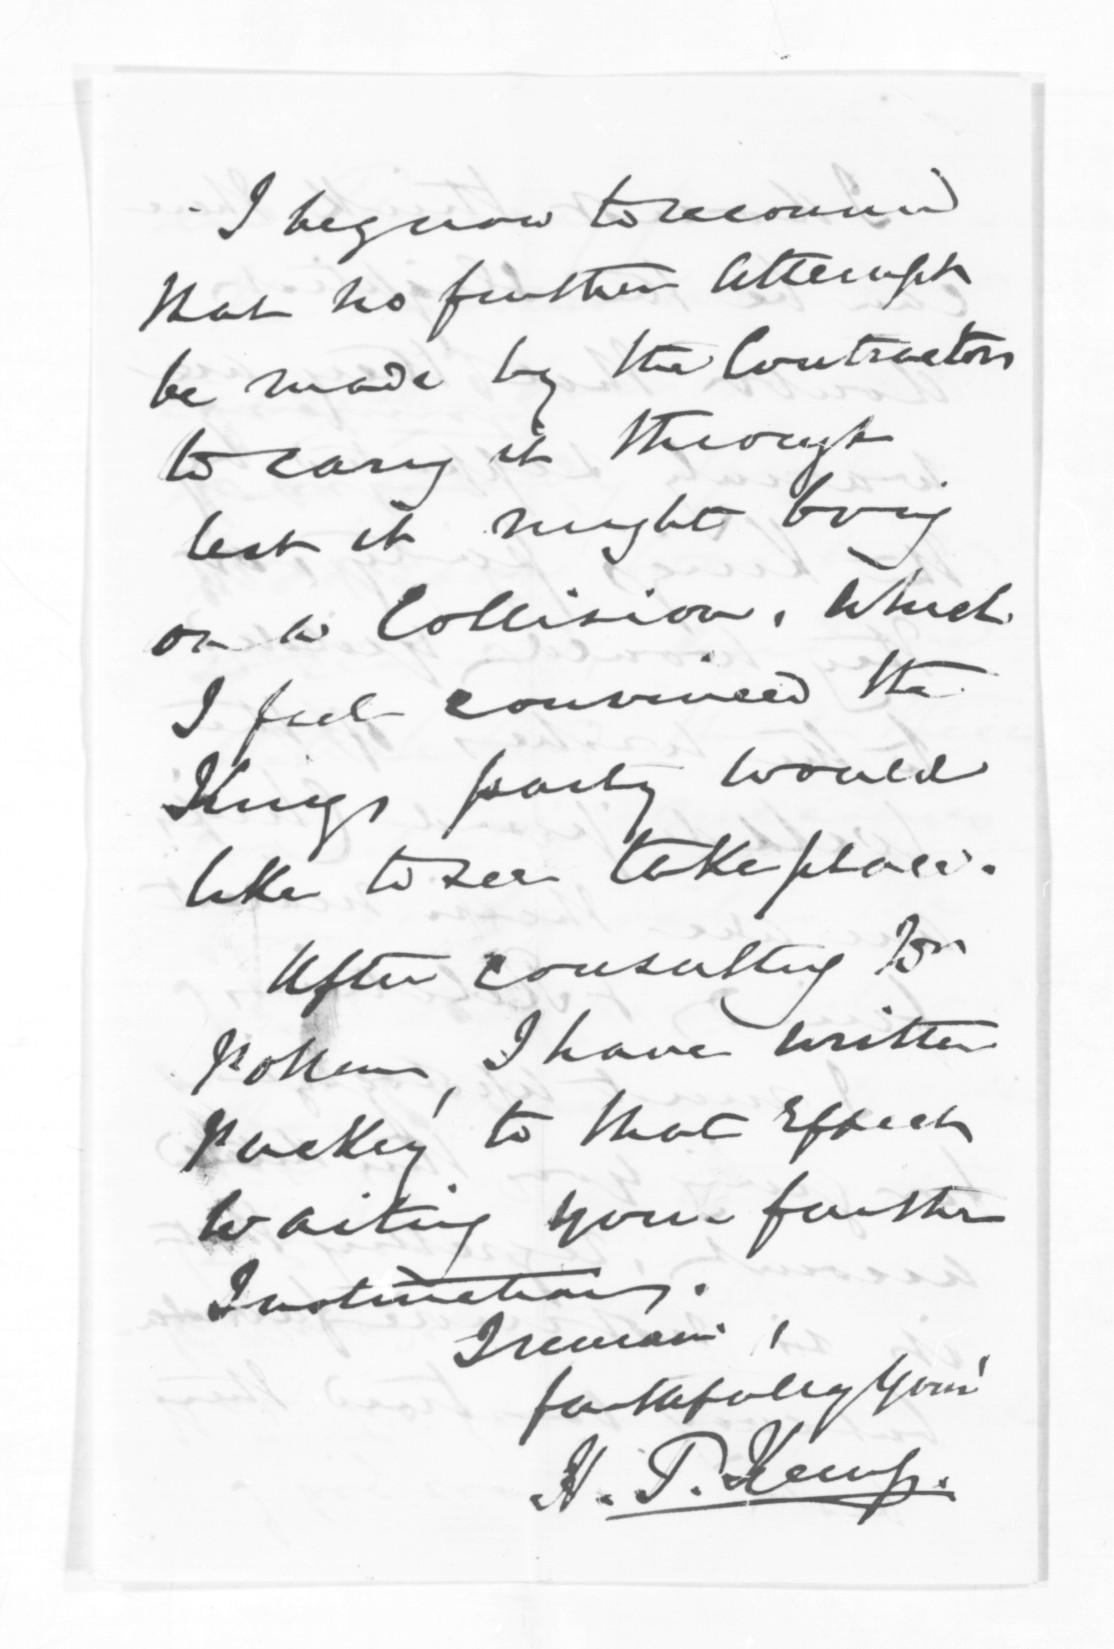 I beg now to recommend
that no further attempt
be made by the Contractors
to carry it through
lest it might bring
on a Collision, which
I feel convinced the
Kings party would
like to see take place.
After consulting Dr
Pollen, I have written
Mackay to that Effect
waiting your further
Instructions.
I remain,
faithfully Yours
H. T. Kemp.